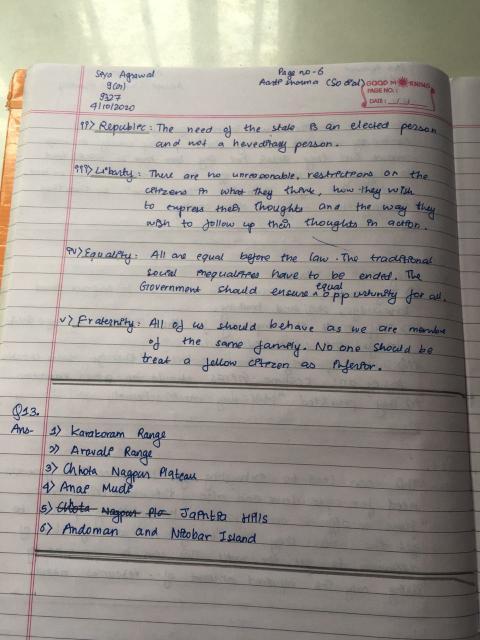 Siya Agrawal
Page no-6
9(M)
Aarti sharma (So cial)
9327
4/10/2020
GOOD MORNING
PAGE NO.:
DATE: / /
ii> Republic: The need of the state is an elected person
and not a hereditary person.
iii> Liberty: There are no unreasonable, restrictions on the
citizens in what they think, how they wish
to express their thoughts and the way they
wish to follow up their thoughts in action.
iv> Equality: All are equal before the law. The traditional
social inequalities have to be ended. The
Government should ensure equal opportunity for all.
v> Fraternity: All of us should behave as we are members
of the same family. No one should be
treat a fellow citizen as inferior.
Q13.
Ans- 1> Karakoram Range
2> Aravali Range
3> Chhota Nagpur Plateau
4> Anai Mudi
5> Chhota Nagpur Pla Jaintia Hills
6> Andoman and Nicobar Island